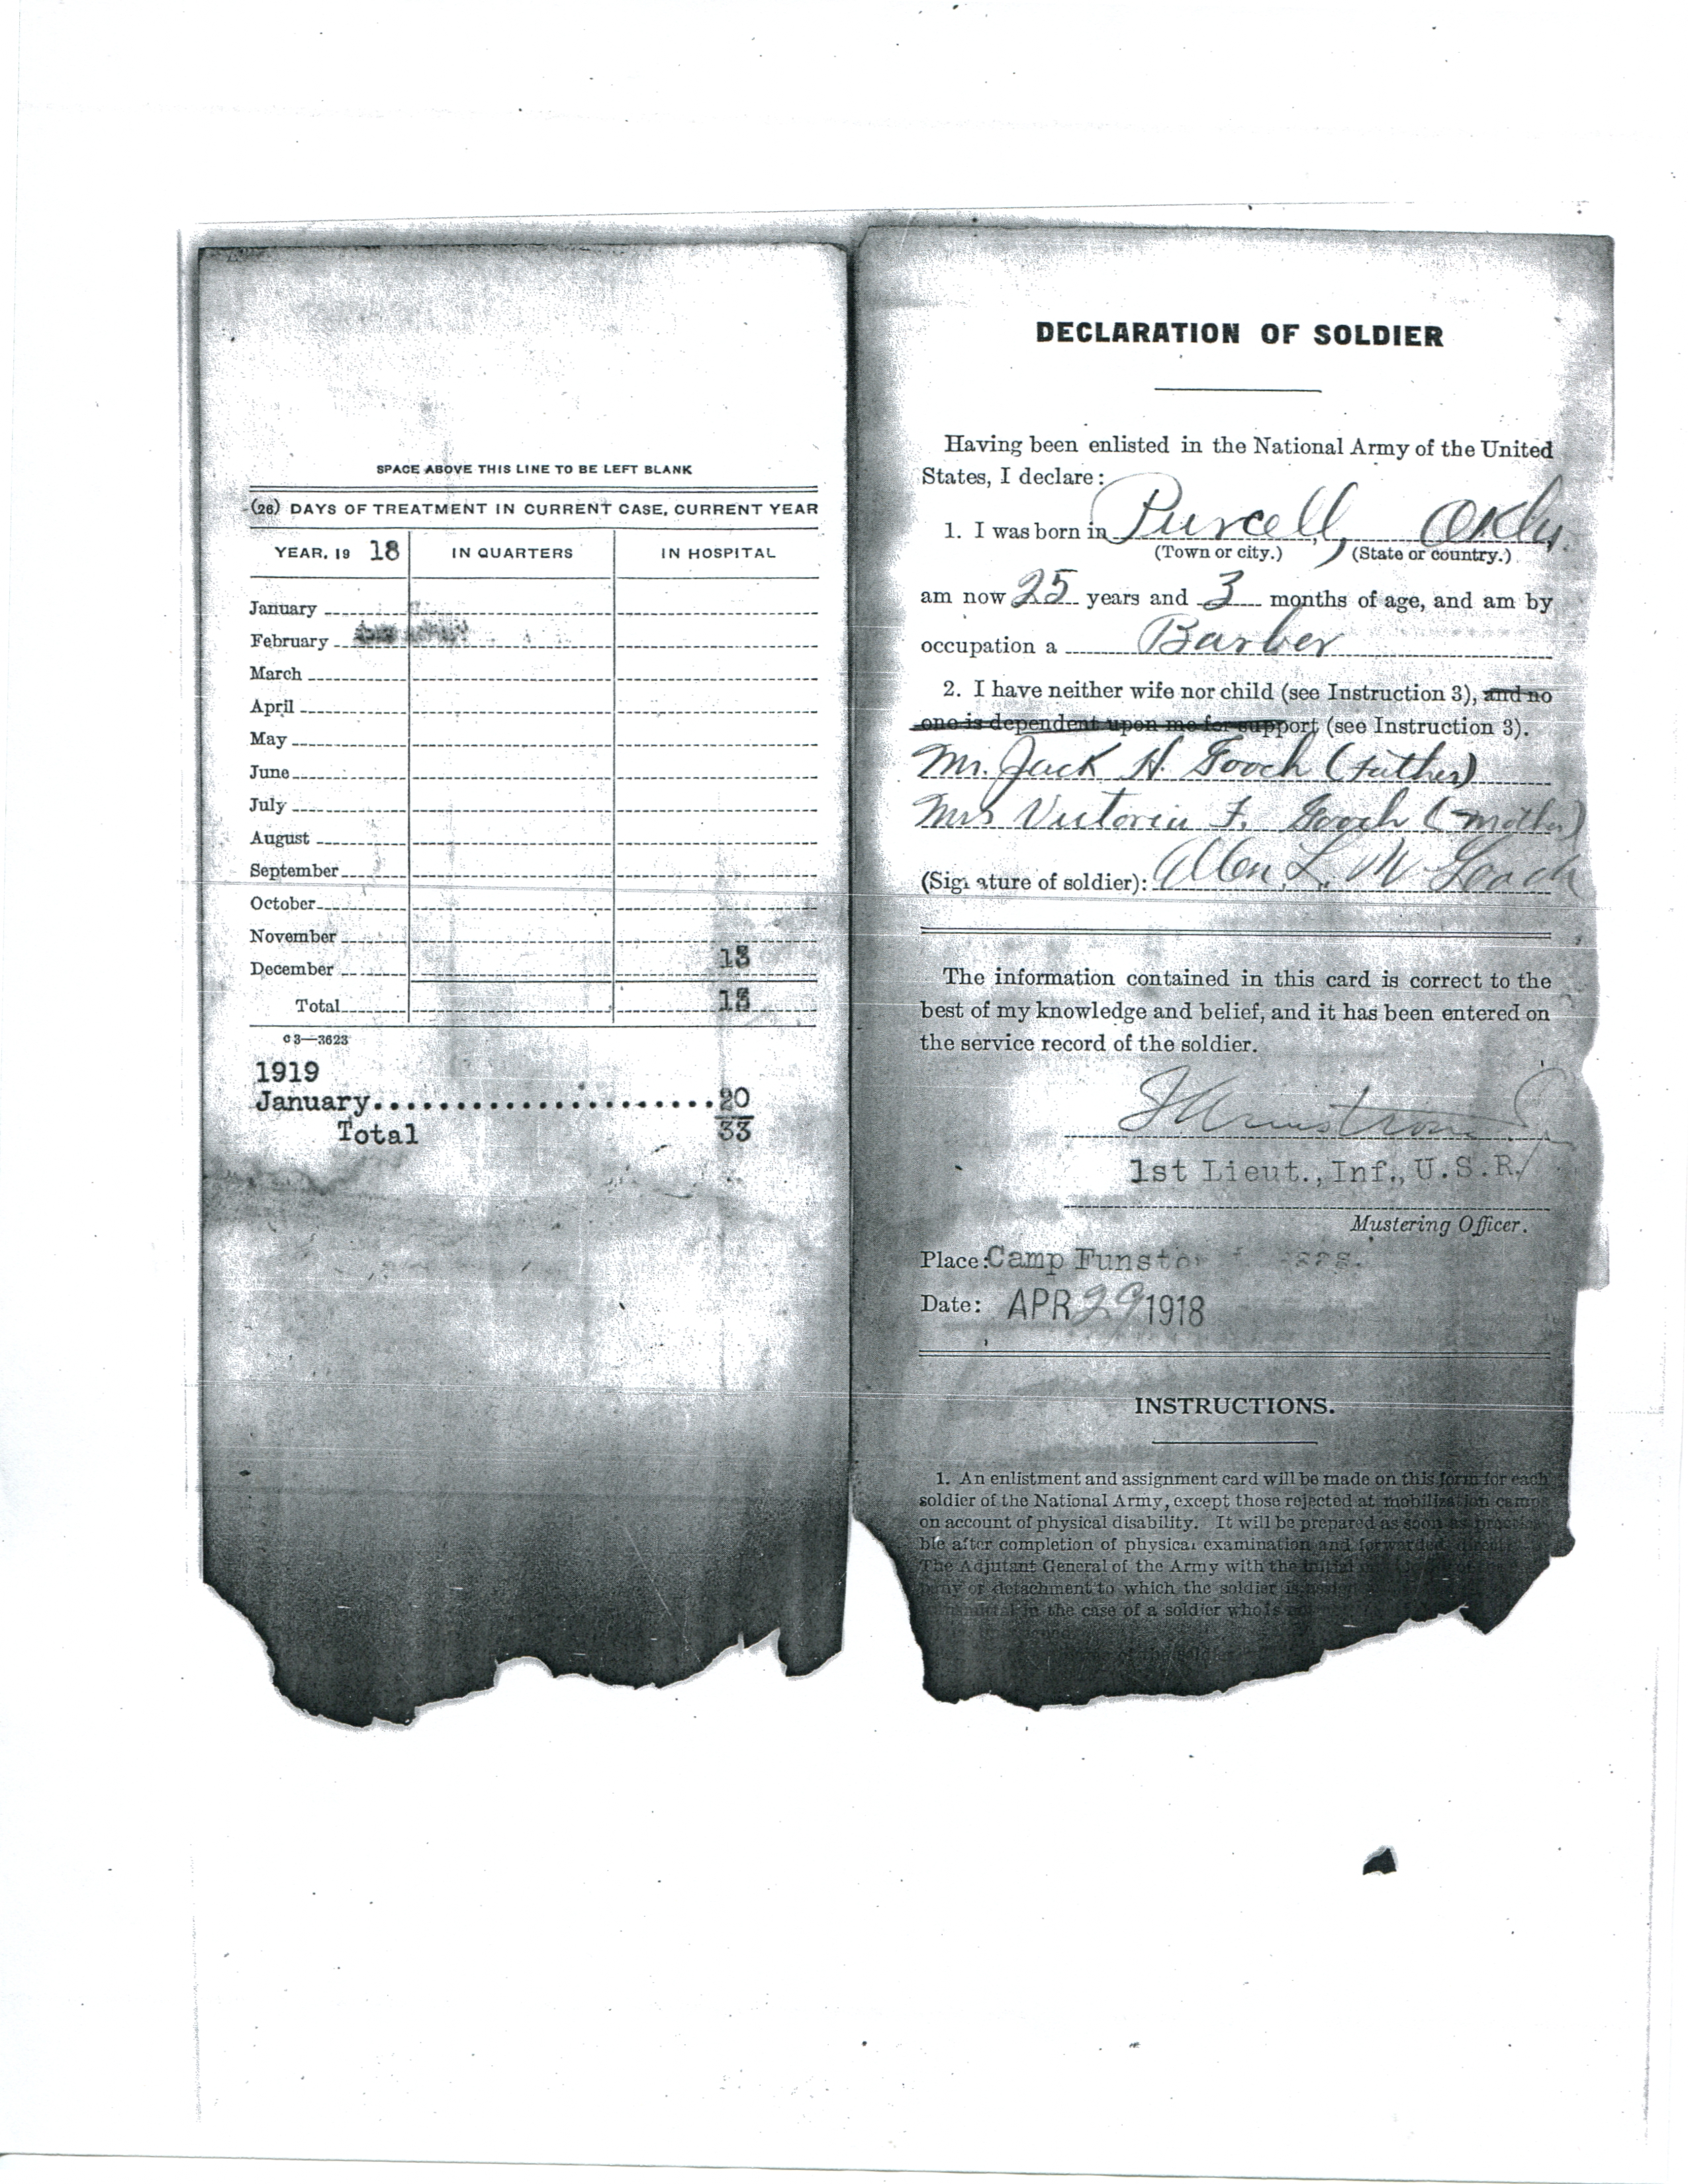 SPACE ABOVE THIS LINE TO BE LEFT BLANK
(26) DAYS OF TREATMENT IN CURRENT CASE, CURRENT YEAR
YEAR, 19 18 IN QUARTERS IN HOSPITAL
January
February
March
April
May
June
July
August
September
October
November
December 13
Total 13
c3—3623
1919
January......................20
Total 33
DECLARATION OF SOLDIER
Having been enlisted in the National Army of the United
States, I declare:
1. I was born in Purcell, Okla.
(Town or city.) (State or country.)
am now 25 years and 3 months of age, and am by
occupation a Barber
2. I have neither wife nor child (see Instruction 3), and no
one is dependent upon me for support (see Instruction 3).
Mr. Jack H. Gooch (Father)
Mrs Victoria F. Gooch (mother)
(Signature of soldier): Allen L. M Gooch
The information contained in this card is correct to the
best of my knowledge and belief, and it has been entered on
the service record of the soldier.
1st Lieut., Inf., U.S.R.
Mustering Officer.
Place: Camp Funston
Date: APR 29 1918
INSTRUCTIONS.
1. An enlistment and assignment card will be made on this form for each
soldier of the National Army, except those rejected at mobilization camps
on account of physical disability. It will be prepared as soon as
ble after completion of physical examination and forwarded
The Adjutant General of the Army with the initial
or detachment to which the soldier is
in the case of a soldier who is
of the soldier